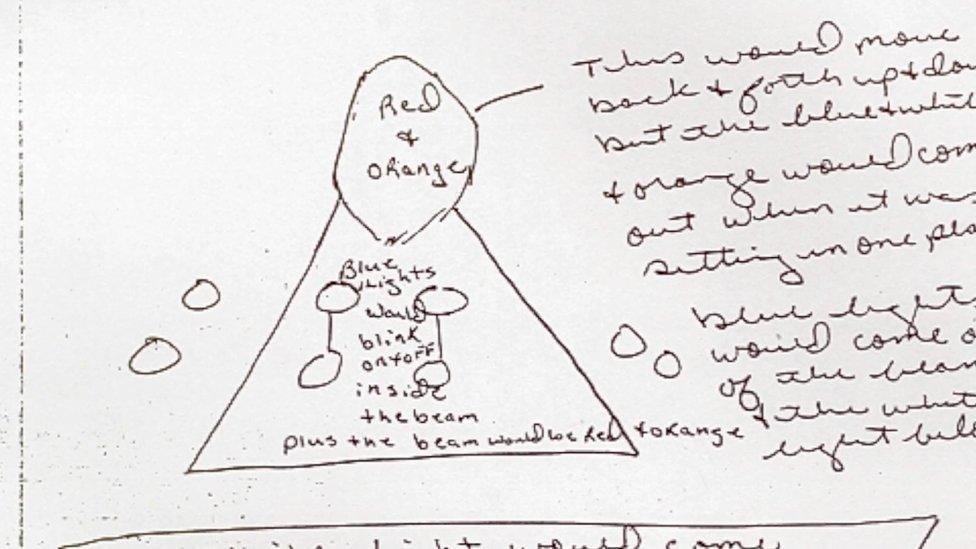 Red
+
Orange
Blue
Lights
would
blink
on+off
inside
the beam
plus the beam would be Red + Orange
This would move
back + forth up + dow
but the blue + whit
+ orange would com
out when it was
setting in one pla
blue light
would come o
of the beam
+ the whit
light
light would come